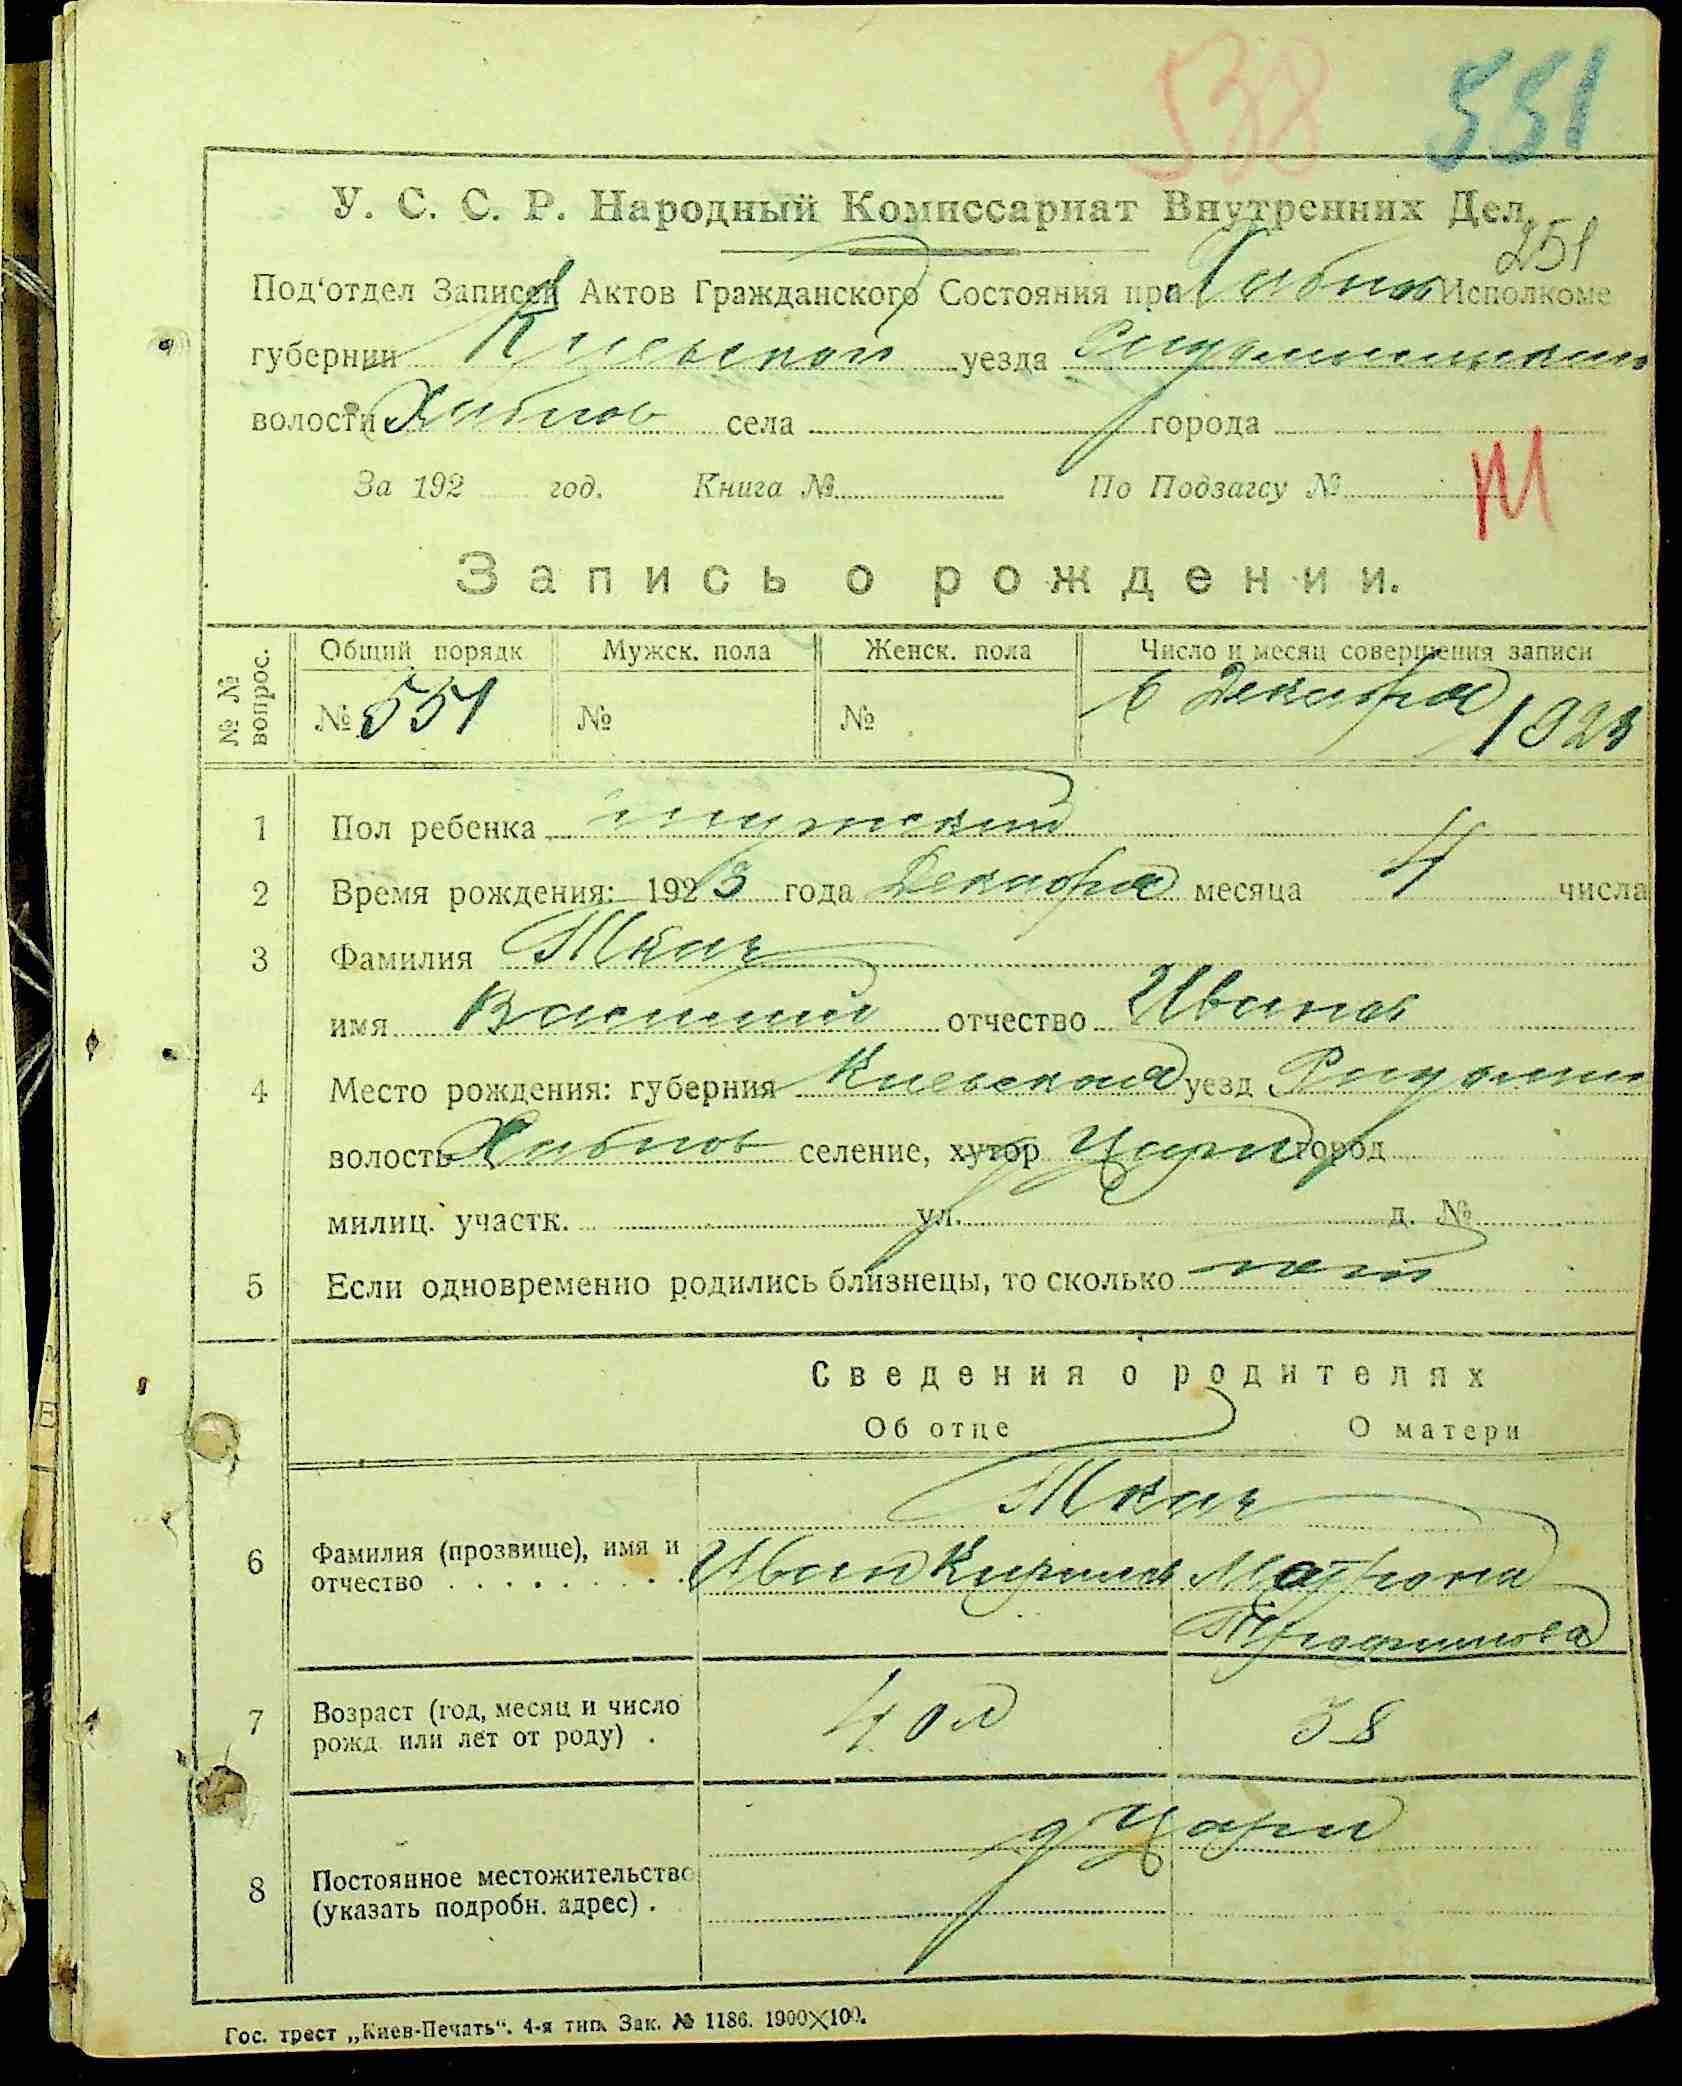 538 551
У. С. С. Р. Народный Комиссариат Внутренних Дел.
251
Под'отдел Записей Актов Гражданского Состояния при Хабнов Исполкоме
губернии Киевской уезда
волости Хабнов села города
За 192 год. Книга № По Подзагсу №
М
Запись о рождении.
№ № вопрос. Общий порядк Мужск. пола Женск. пола Число и месяц совершения записи
№ 551 № № 6 Декабря 1923
1 Пол ребенка мужской
2 Время рождения: 1923 года Декабря месяца 4 числа
3 Фамилия Ткач
имя Василий отчество Иванов
4 Место рождения: губерния Киевская уезд Радомы
волость Хабнов селение, хутор город
милиц. участк. ул. д. №
5 Если одновременно родились близнецы, то сколько нет
Сведения о родителях
Об отце О матери
Ткач
6 Фамилия (прозвище), имя и отчество Иван Кирилов Матрона
Трофимова
7 Возраст (год, месяц и число рожд. или лет от роду) . 40 л 38
8 Постоянное местожительство (указать подробн. адрес) .
Гос. трест „Киев-Печать“. 4-я тип. Зак. № 1186. 1900×100.